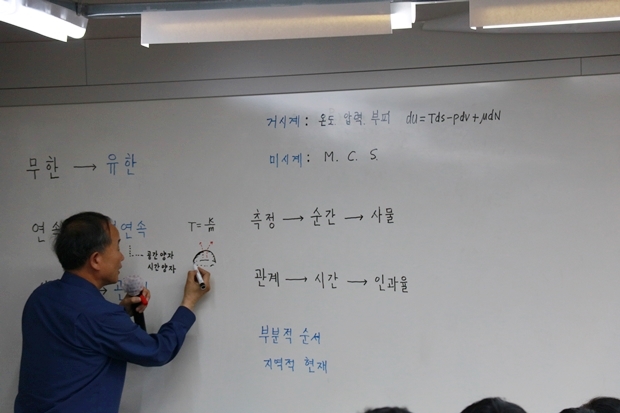 거시계: 온도 압력. 부피 du=Tds-pdv+μdN
미시계: M. C. S.
무한 → 유한
연속 연속
공간양자
시간양자
측정 → 순간 → 사물
관계 → 시간 → 인과율
부분적 순서
지역적 현재